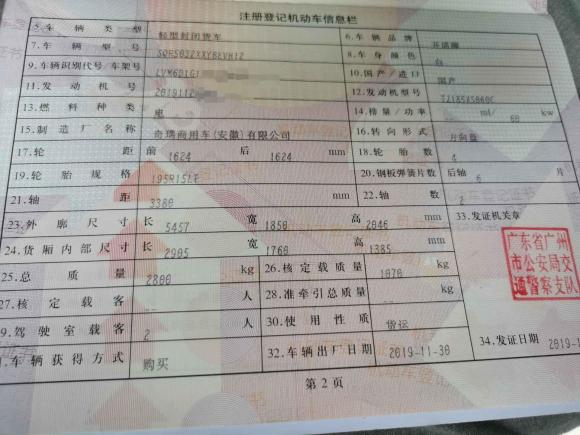 注册登记机动车信息栏
5.车辆类型 轻型封闭货车 6.车辆品牌 开瑞牌
7.车辆型号 SQR5032XXYBEVH12 8.车身颜色 白
9.车辆识别代号/车架号 LVM6D1G1 10.国产/进口 国产
11.发动机号 2019112 12.发动机型号 TZ185XS060C
13.燃料种类 电 14.排量/功率 ml/ 60 kw
15.制造厂名称 奇瑞商用车(安徽)有限公司 16.转向形式 方向盘
17.轮距 前 1624 后 1624 mm 18.轮胎数 4
19.轮胎规格 195R15LT 20.钢板弹簧片数 后轴 6 片
21.轴距 3380 mm 22.轴数 2
23.外廓尺寸 长 5457 宽 1850 高 2046 mm 33.发证机关章
24.货厢内部尺寸 长 2905 宽 1760 高 1385 mm
广东省广州
市公安局交
通警察支队
25.总质量 2800 kg 26.核定载质量 1070 kg
27.核定载客 -- 人 28.准牵引总质量 -- kg
9.驾驶室载客 2 人 30.使用性质 货运
.车辆获得方式 购买 32.车辆出厂日期 2019-11-30 34.发证日期 2019-1
第2页